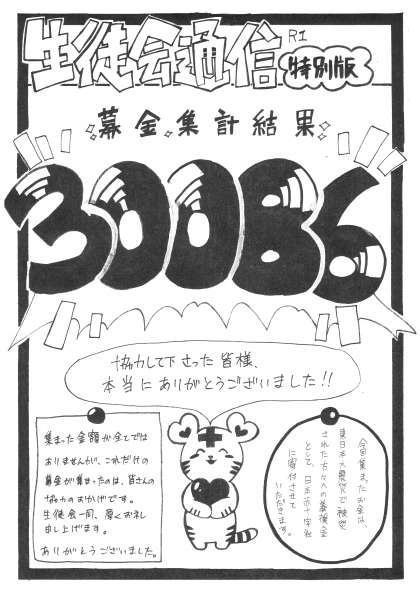 生徒会通信
R1
特別版
募金集計結果
30086
協力して下さった皆様、
本当にありがとうございました!!
集まった金額が全てでは
ありませんが、これだけの
募金が集まったのは、皆さんの
協力のおかげです。
生徒会一同、厚くお礼
申し上げます。
ありがとうございました。
今回集まったお金は、
東日本大震災で被災
された方々への義援金
として、日本赤十字社
に寄付させて
いただきます。